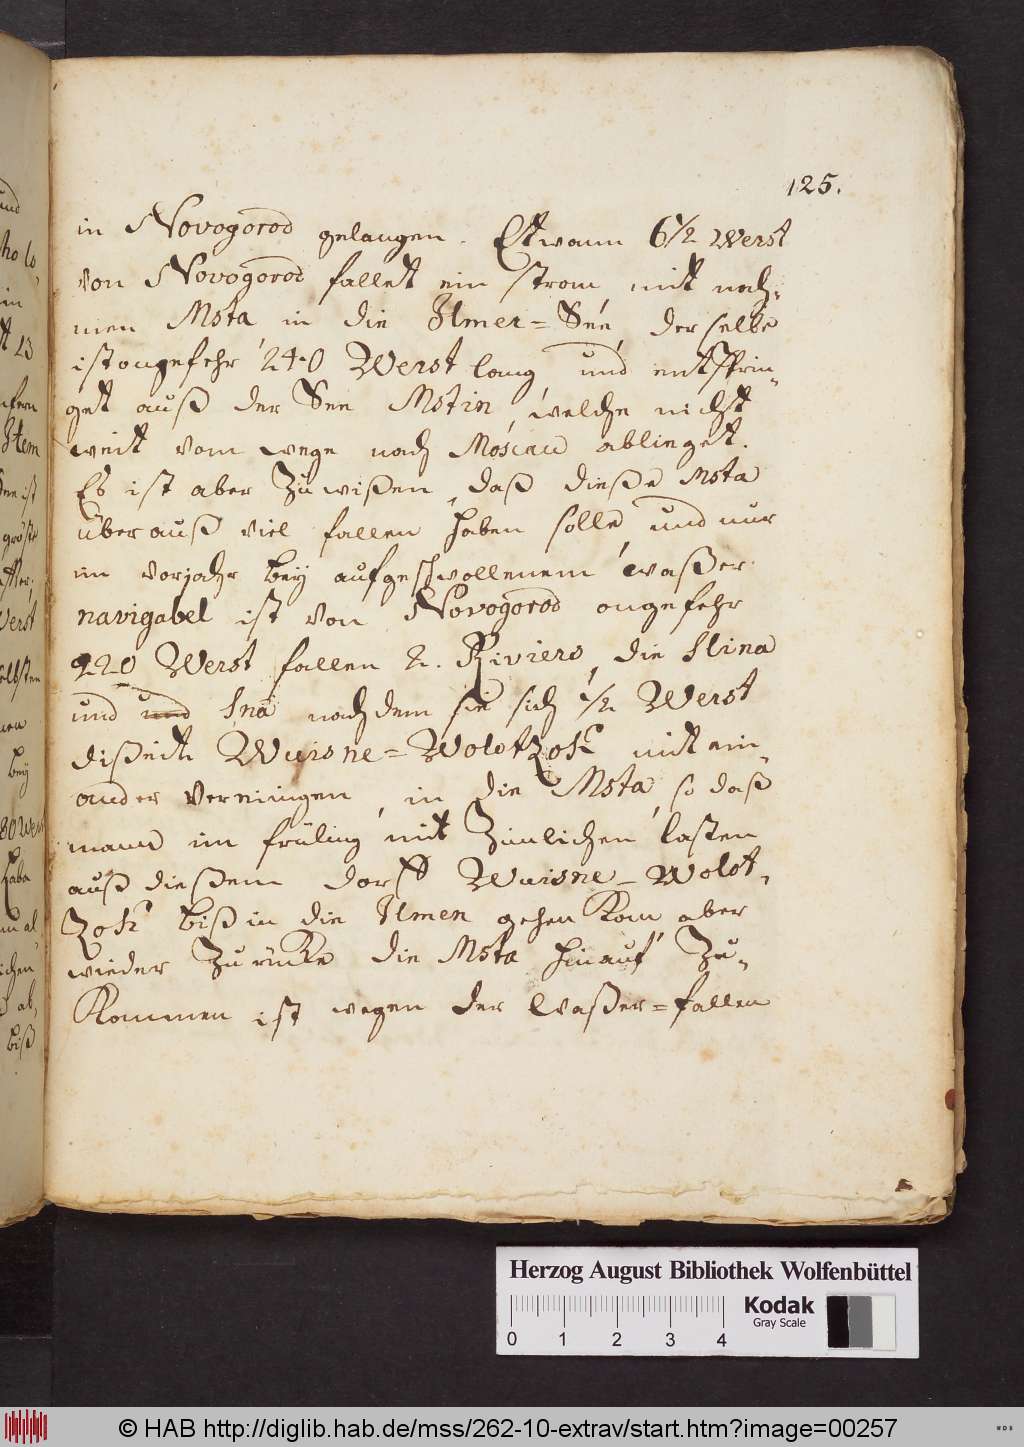 125.
in Novogorod gelangen. Etwann 6 1/2 Werst
von Novogorod fallet ein strom mit nah-
men Msta in die Ilmer=See derselbe
ist ongefehr 240 Werst lang und entsprin-
get auß der See Mstin, welche nicht
weit vom wege nach Moscau ablieget.
Es ist aber zu wißen, daß dieße Msta
überauß viel fallen haben solle, und nur
im vorjahr bey aufgeschwollenem waßer
navigabel ist von Novogorod ongefehr
220 Werst fallen 2. Riviers, die Slina
und und Sna nachdem sie sich 1/2 Werst
dißeith Wuisne=Wolotzok mit ein-
ander vereiningen, in die Msta, so daß
mann im früling mit zimlichen lasten
auß dießem dorff Wuisne-Wolot-
zok biß in die Ilmen gehen kan aber
wieder zurücke die Msta hinauf zu-
kommen ist wegen der waßer=fallen
und
ho lo
in
tt 13
nfern
Item
See ist
größte
Werst
selbsten
bey
80 Wer
biß
Herzog August Bibliothek Wolfenbüttel
0 1 2 3 4
Kodak
Gray Scale
© HAB http://diglib.hab.de/mss/262-10-extrav/start.htm?image=00257